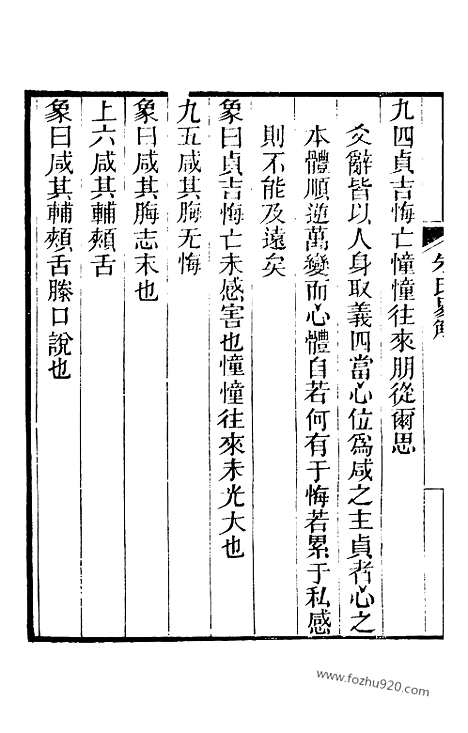 九四貞吉悔亡憧憧往來朋從爾思
爻辭皆以人身取義四當心位爲咸之主貞者心之
本體順逆萬變而心體自若何有于悔若累于私感
則不能及遠矣
象曰貞吉悔亡未感害也憧憧往來未光大也
九五咸其脢无悔
象曰咸其脢志末也
上六咸其輔頰舌
象曰咸其輔頰舌滕口說也
www.fozhu920.com